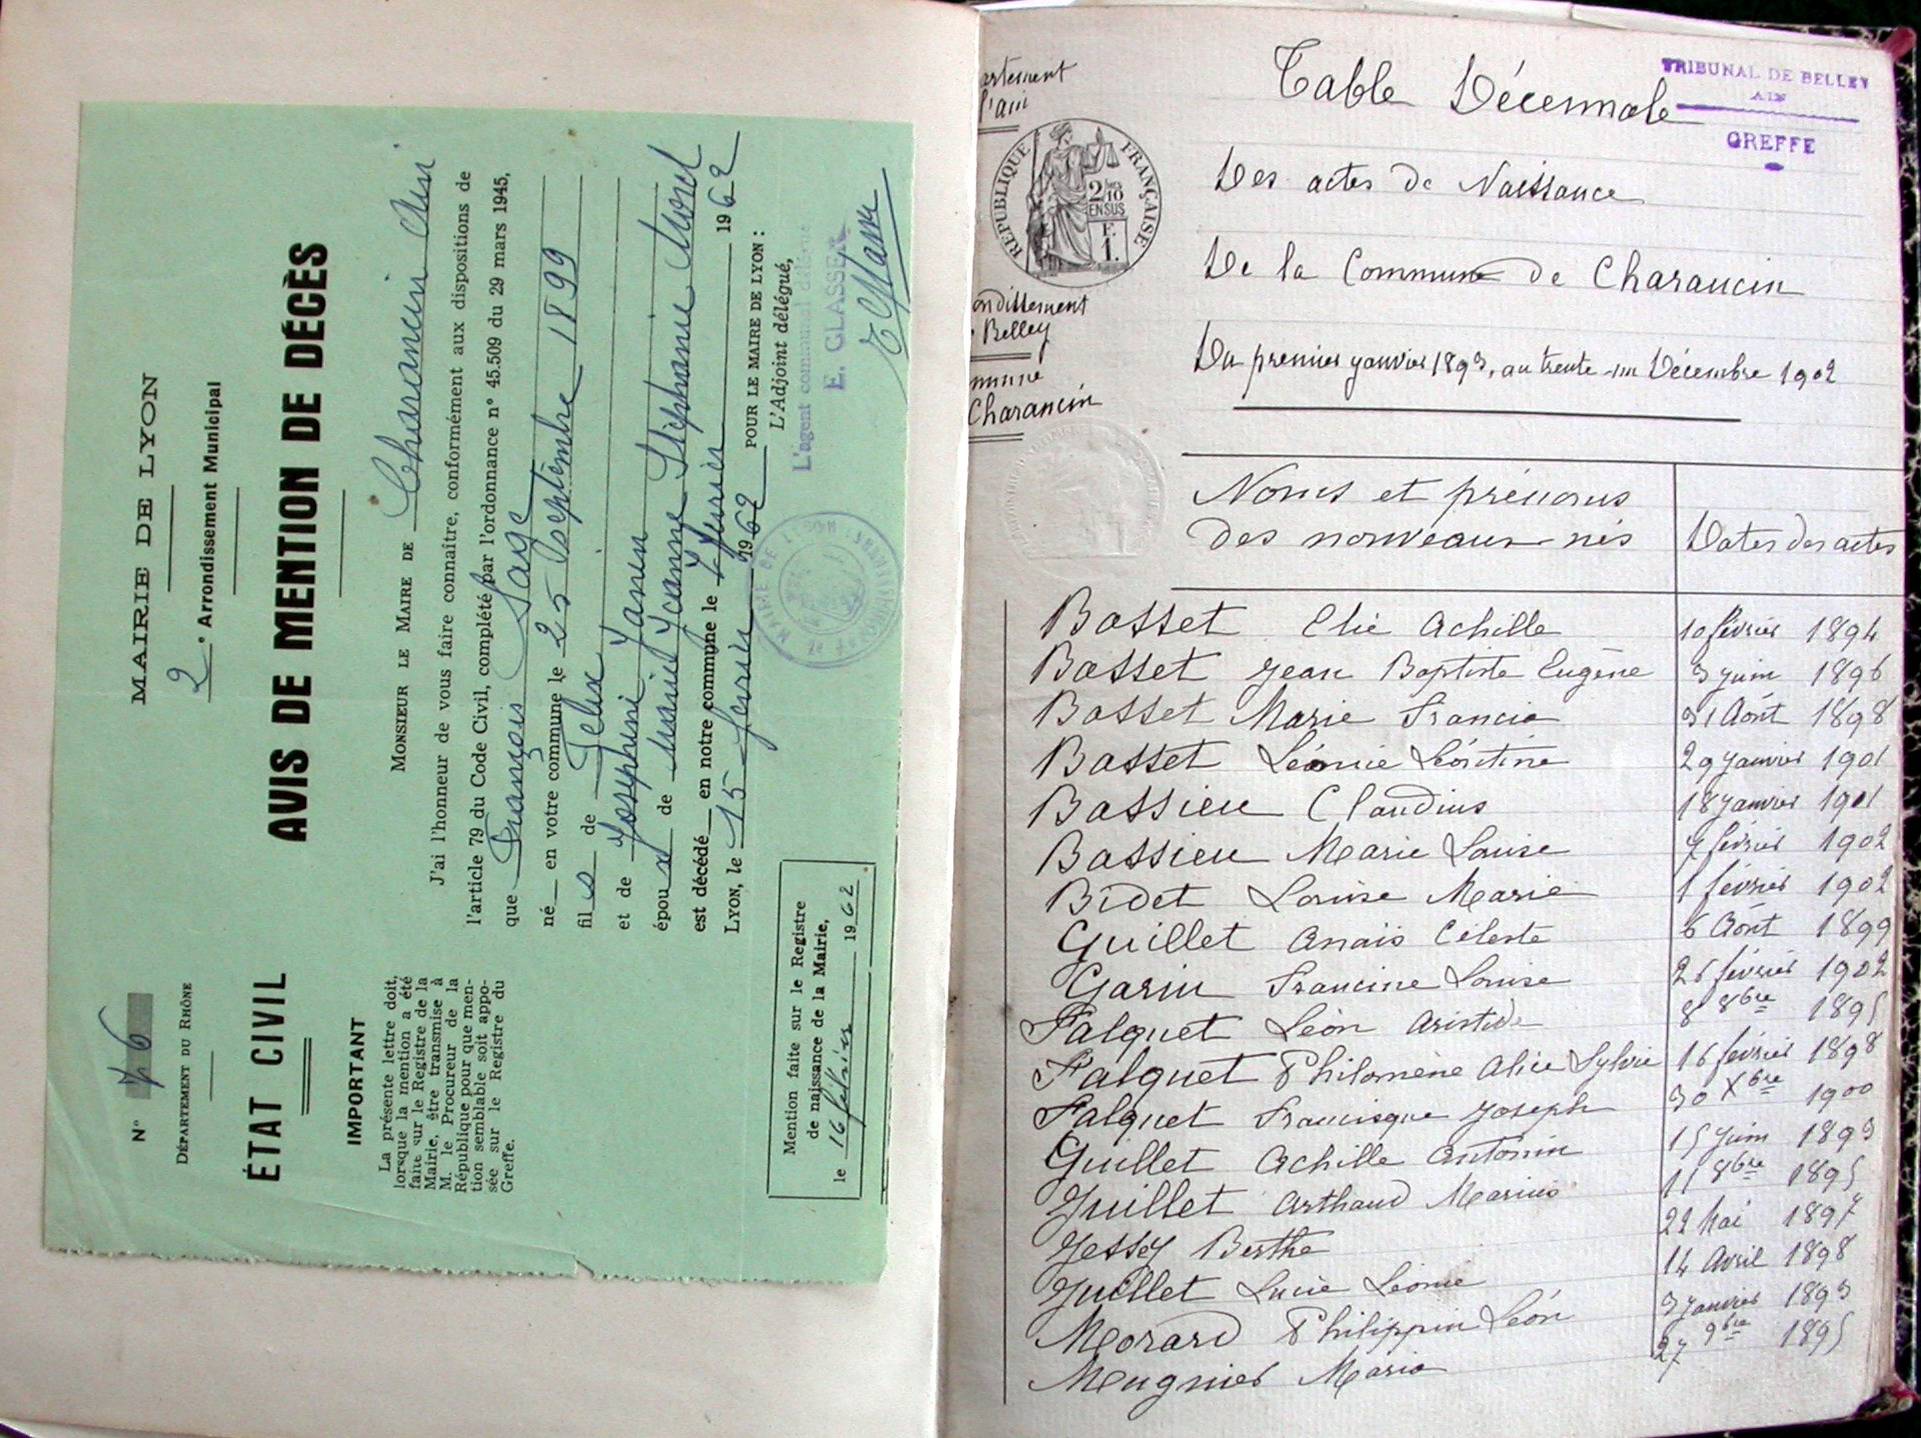 MAIRIE DE LYON
2e Arrondissement Municipal
AVIS DE MENTION DE DÉCÈS
Monsieur le Maire de Charancin Ain
J'ai l'honneur de vous faire connaître, conformément aux dispositions de
l'article 79 du Code Civil, complété par l'ordonnance n° 45.509 du 29 mars 1945,
que François Sage
né en votre commune le 25 Septembre 1899
fils de Felix
et de Josephine Janin
époux de Marie Jeanne Stéphanie Morel
est décédé en notre commune le février 1962
Lyon, le 15 fevrier 1962
POUR LE MAIRE DE LYON :
L'Adjoint délégué,
L'agent communal délégué
E. GLASSER
N° 76
Département du Rhône
ÉTAT CIVIL
IMPORTANT
La présente lettre doit,
lorsque la mention a été
faite sur le Registre de la
Mairie, être transmise à
M. le Procureur de la
République pour que men-
tion semblable soit appo-
sée sur le Registre du
Greffe.
Mention faite sur le Registre
de naissance de la Mairie,
le 16 février 1962
artement
l'ain
RÉPUBLIQUE FRANÇAISE
2/10
EN SUS
F.
1.
ondissement
Belley
mune
Charancin
TRIBUNAL DE BELLEY
AIN
GREFFE
Table Décennale
Des actes de Naissance
De la Commune de Charancin
Du premier janvier 1893, au trente-un Décembre 1902
Noms et prénoms
des nouveaux-nés
Dates des actes
Basset Elie Achille 10 février 1894
Basset Jean Baptiste Eugène 3 juin 1896
Basset Marie Francia 31 Août 1898
Basset Léonie Léontine 29 janvier 1901
Bassieu Claudius 18 janvier 1901
Bassieu Marie Louise février 1902
Bidet Louise Marie 1 février 1902
Guillet Anaïs Céleste 6 Août 1899
Garin Francine Louise 26 février 1902
Falquet Léon Aristide 8 8bre 1895
Falquet Philomène Alice Sylvie 16 février 1898
Falquet Francisque Joseph 30 Xbre 1900
Guillet Achille Antonin 15 Juin 1893
Juillet Arthaud Marius 11 8bre 1895
Jessey Berthe 22 Mai 1897
Juillet Lucie Léonie 14 Avril 1898
Morard Philippin Léon 3 janvier 1893
Meugnier Maria 27 9bre 1895